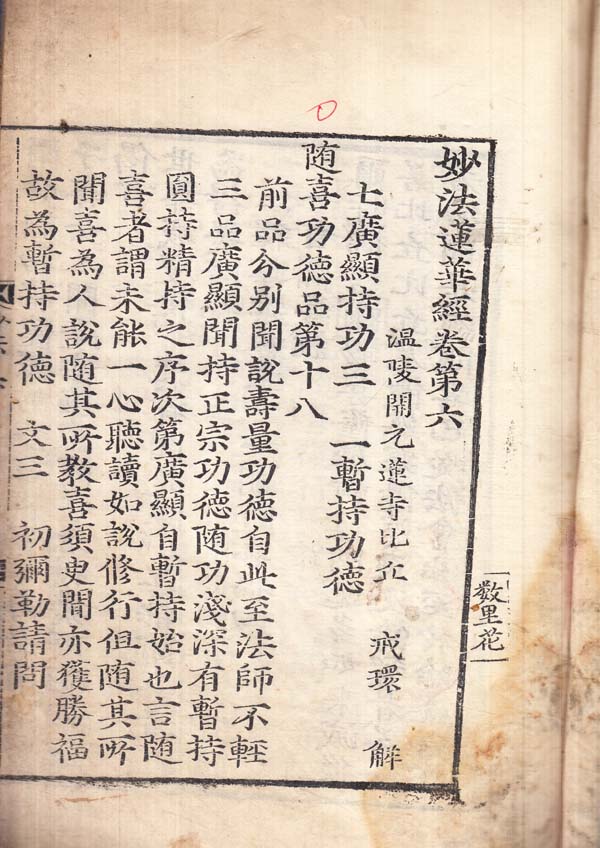 妙法蓮華經卷第六
温陵開元蓮寺比丘 戒環 解
七廣顯持功三 一暫持功德
随喜功德品第十八
前品分别聞說壽量功德自此至法師不輕
三品廣顯聞持正宗功德随功淺深有暫持
圓持精持之序次第廣顯自暫持始也言随
喜者謂未能一心聽讀如說修行但随其所
聞喜為人說随其所教喜須臾間亦獲勝福
故為暫持功德 文三 初彌勒請問
数里花